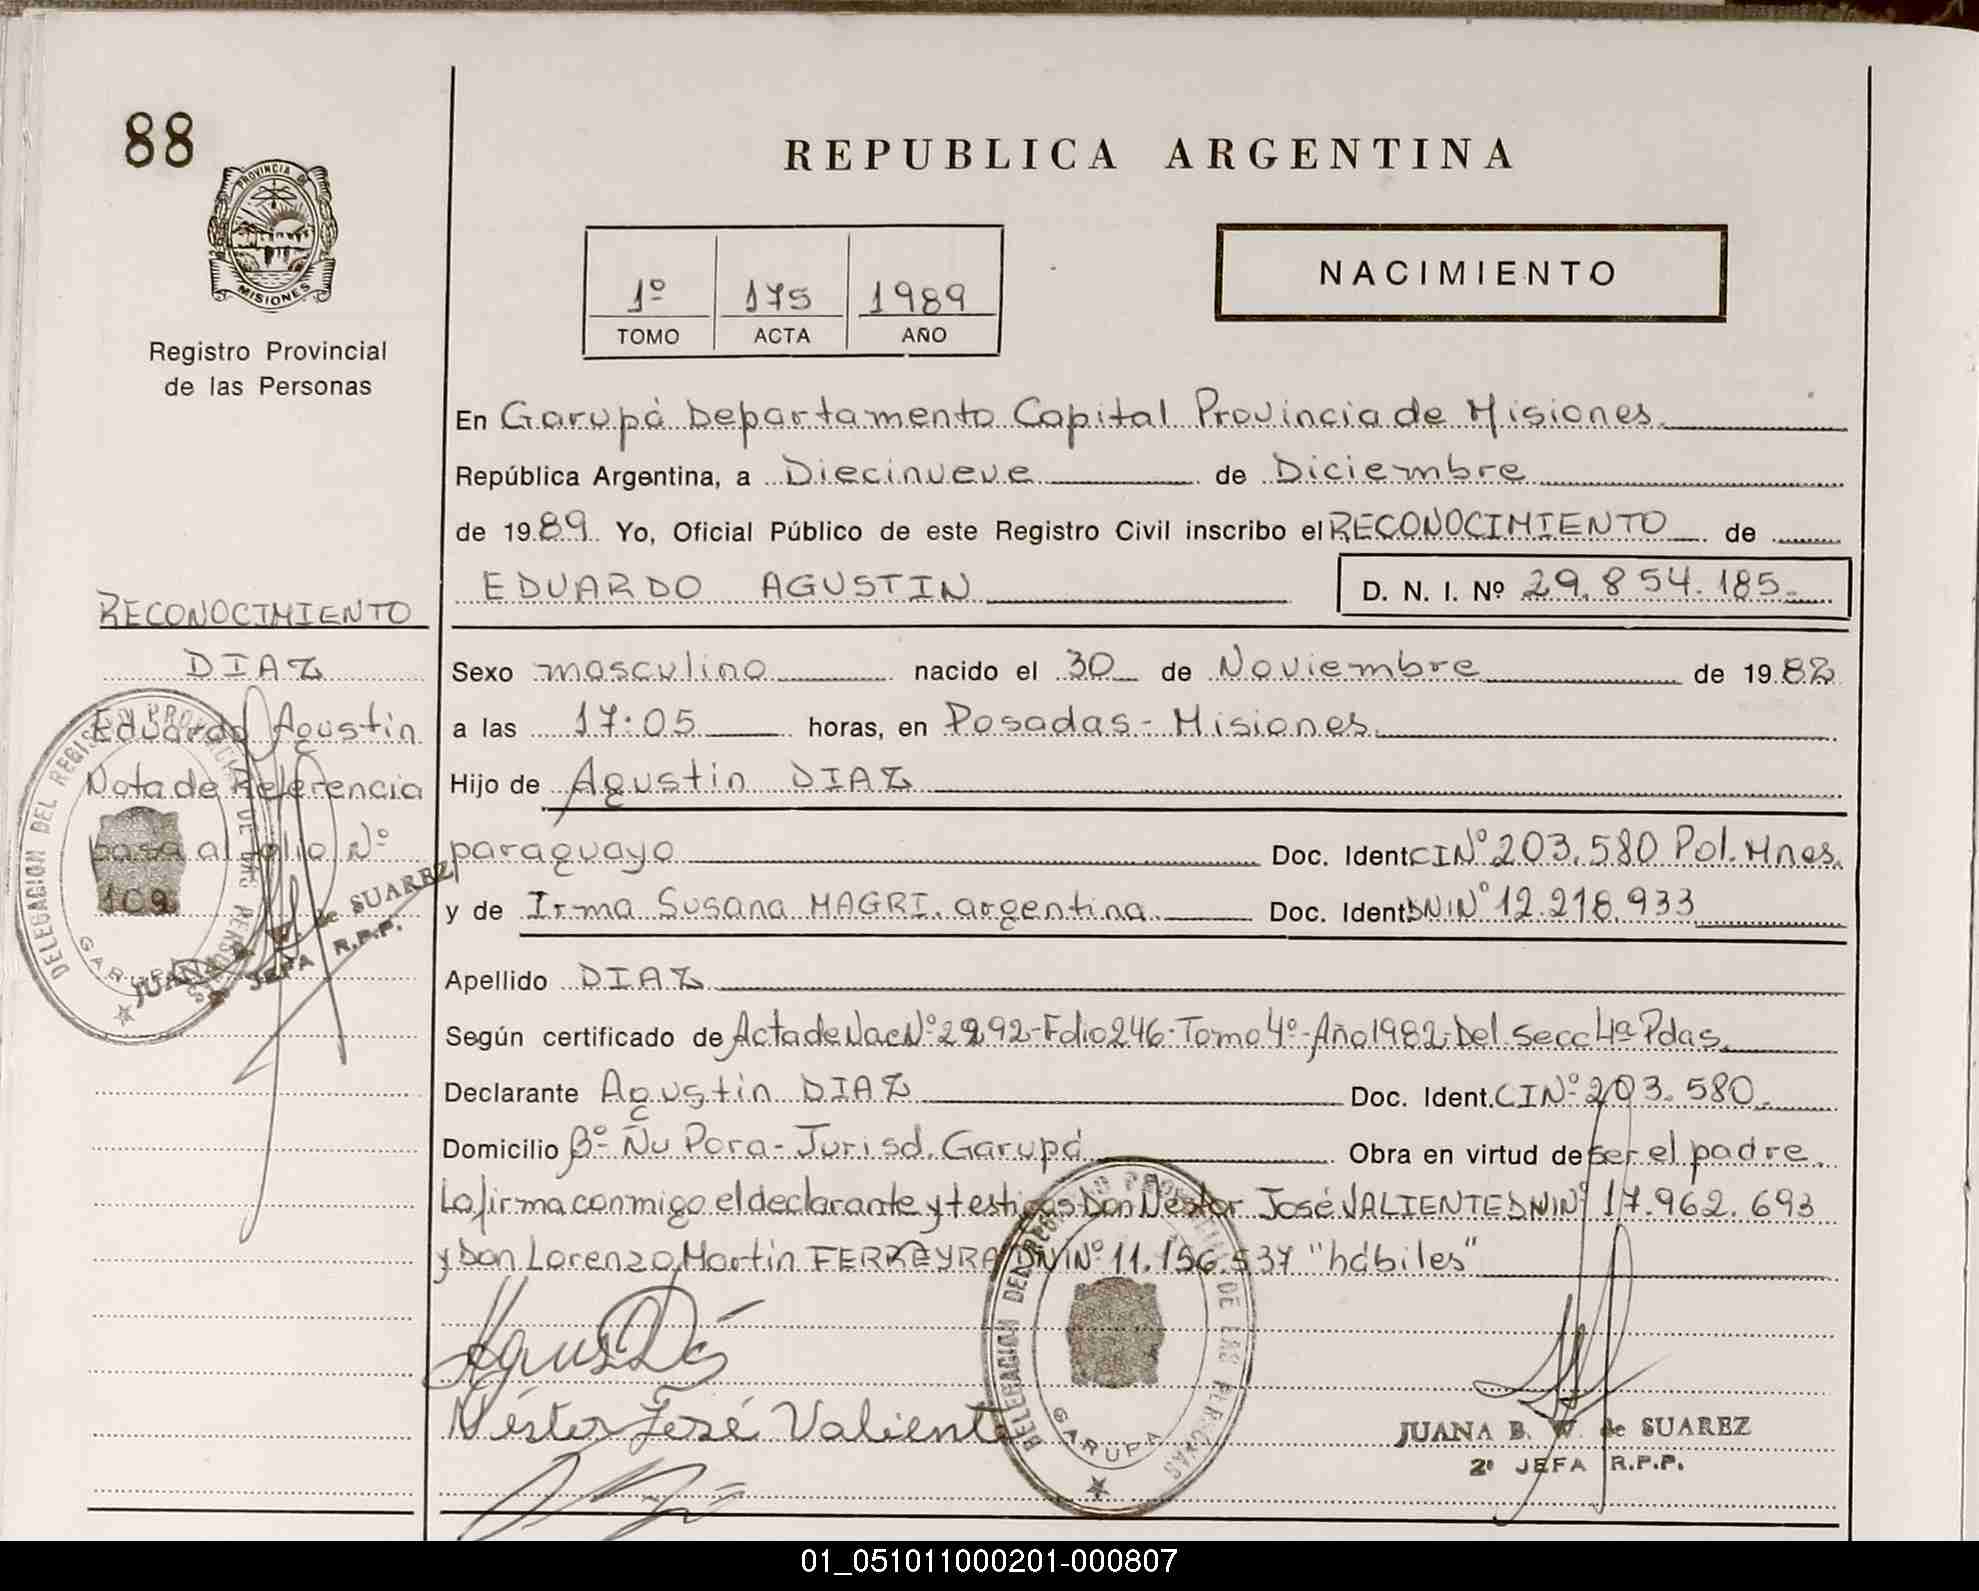 88
REPUBLICA ARGENTINA
PROVINCIA DE
MISIONES
Registro Provincial
de las Personas
1º 175 1989
TOMO ACTA AÑO
NACIMIENTO
En Garupá Departamento Capital Provincia de Misiones.
República Argentina, a Diecinueve de Diciembre
de 1989. Yo, Oficial Público de este Registro Civil inscribo el RECONOCIMIENTO de
EDUARDO AGUSTIN D. N. I. Nº 29.854.185.
Sexo masculino nacido el 30 de Noviembre de 1982
a las 17:05 horas, en Posadas - Misiones.
Hijo de Agustin DIAZ
paraguayo Doc. Ident. CI Nº 203.580 Pol. Mnes.
y de Irma Susana MAGRI. argentina. Doc. Ident. DNI Nº 12.218.933
Apellido DIAZ
Según certificado de Acta de Nac Nº 2292 - Folio 246 - Tomo 4º - Año 1982 - Del. Secc 4ª Pdas.
Declarante Agustin DIAZ Doc. Ident. CI Nº 203.580.
Domicilio Bº Ñu Pora - Jurisd. Garupá Obra en virtud de ser el padre.
La firma conmigo el declarante y testigos Don Nestor José VALIENTE DNI Nº 17.962.693
y Don Lorenzo Martin FERREYRA DNI Nº 11.156.537 "hábiles"
Néstor José Valiente
DELEGACION DEL REGISTRO PROVINCIAL DE LAS PERSONAS
GARUPA
JUANA B. W. de SUAREZ
2º JEFA R.P.P.
RECONOCIMIENTO
DIAZ
Eduardo Agustin
Nota de Referencia
pasa al folio Nº
109
DELEGACION DEL REGISTRO PROVINCIAL DE LAS PERSONAS
GARUPA
JUANA B. W. de SUAREZ
2º JEFA R.P.P.
01_051011000201-000807